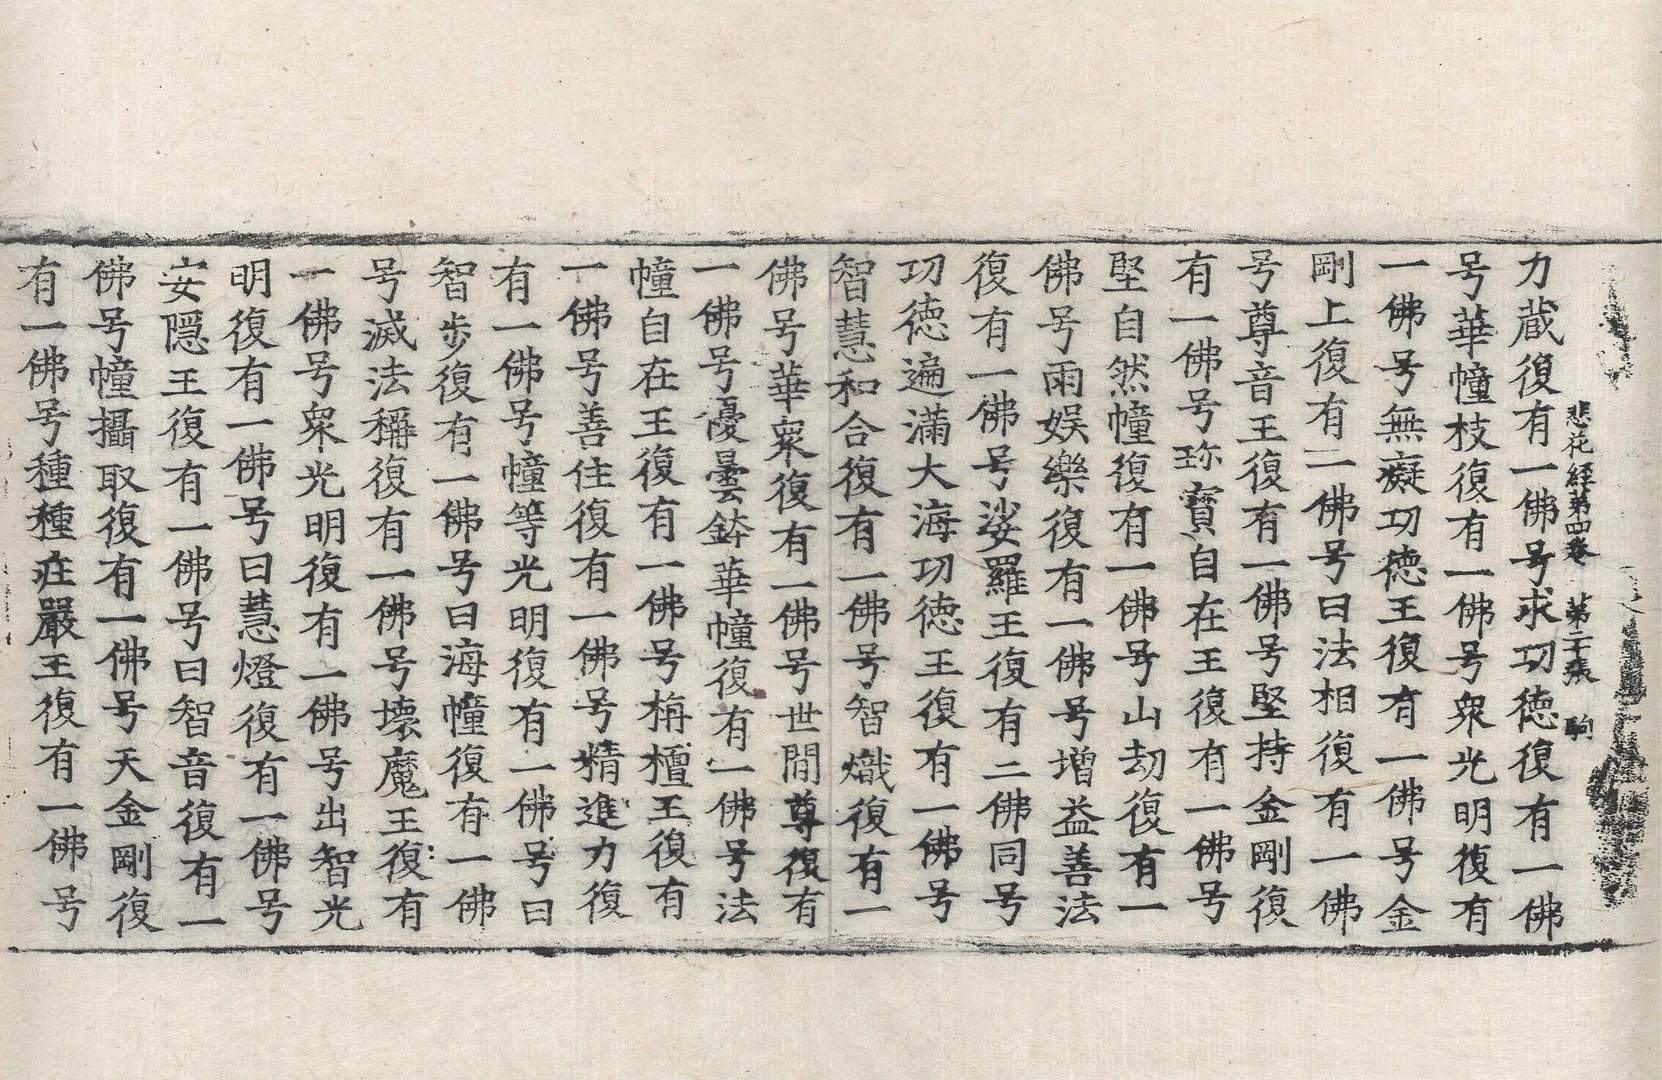 悲花經第四卷 第二十張 駒
力蔵復有一佛号求功德復有一佛
号華幢枝復有一佛号眾光明復有
一佛号無癡功德王復有一佛号金
剛上復有一佛号曰法相復有一佛
号尊音王復有一佛号堅持金剛復
有一佛号珎寳自在王復有一佛号
堅自然幢復有一佛号山劫復有一
佛号雨娱樂復有一佛号增益善法
復有一佛号娑羅王復有二佛同号
功德遍滿大海功德王復有一佛号
智慧和合復有一佛号智熾復有一
佛号華衆復有一佛号世間尊復有
一佛号優曇鉢華幢復有一佛号法
幢自在王復有一佛号栴檀王復有
一佛号善住復有一佛号精進力復
有一佛号幢等光明復有一佛号曰
智步復有一佛号曰海幢復有一佛
号滅法稱復有一佛号壞魔王復有
一佛号衆光明復有一佛号出智光
明復有一佛号曰慧燈復有一佛号
安隱王復有一佛号曰智音復有一
佛号幢攝取復有一佛号天金剛復
有一佛号種種庄嚴王復有一佛号